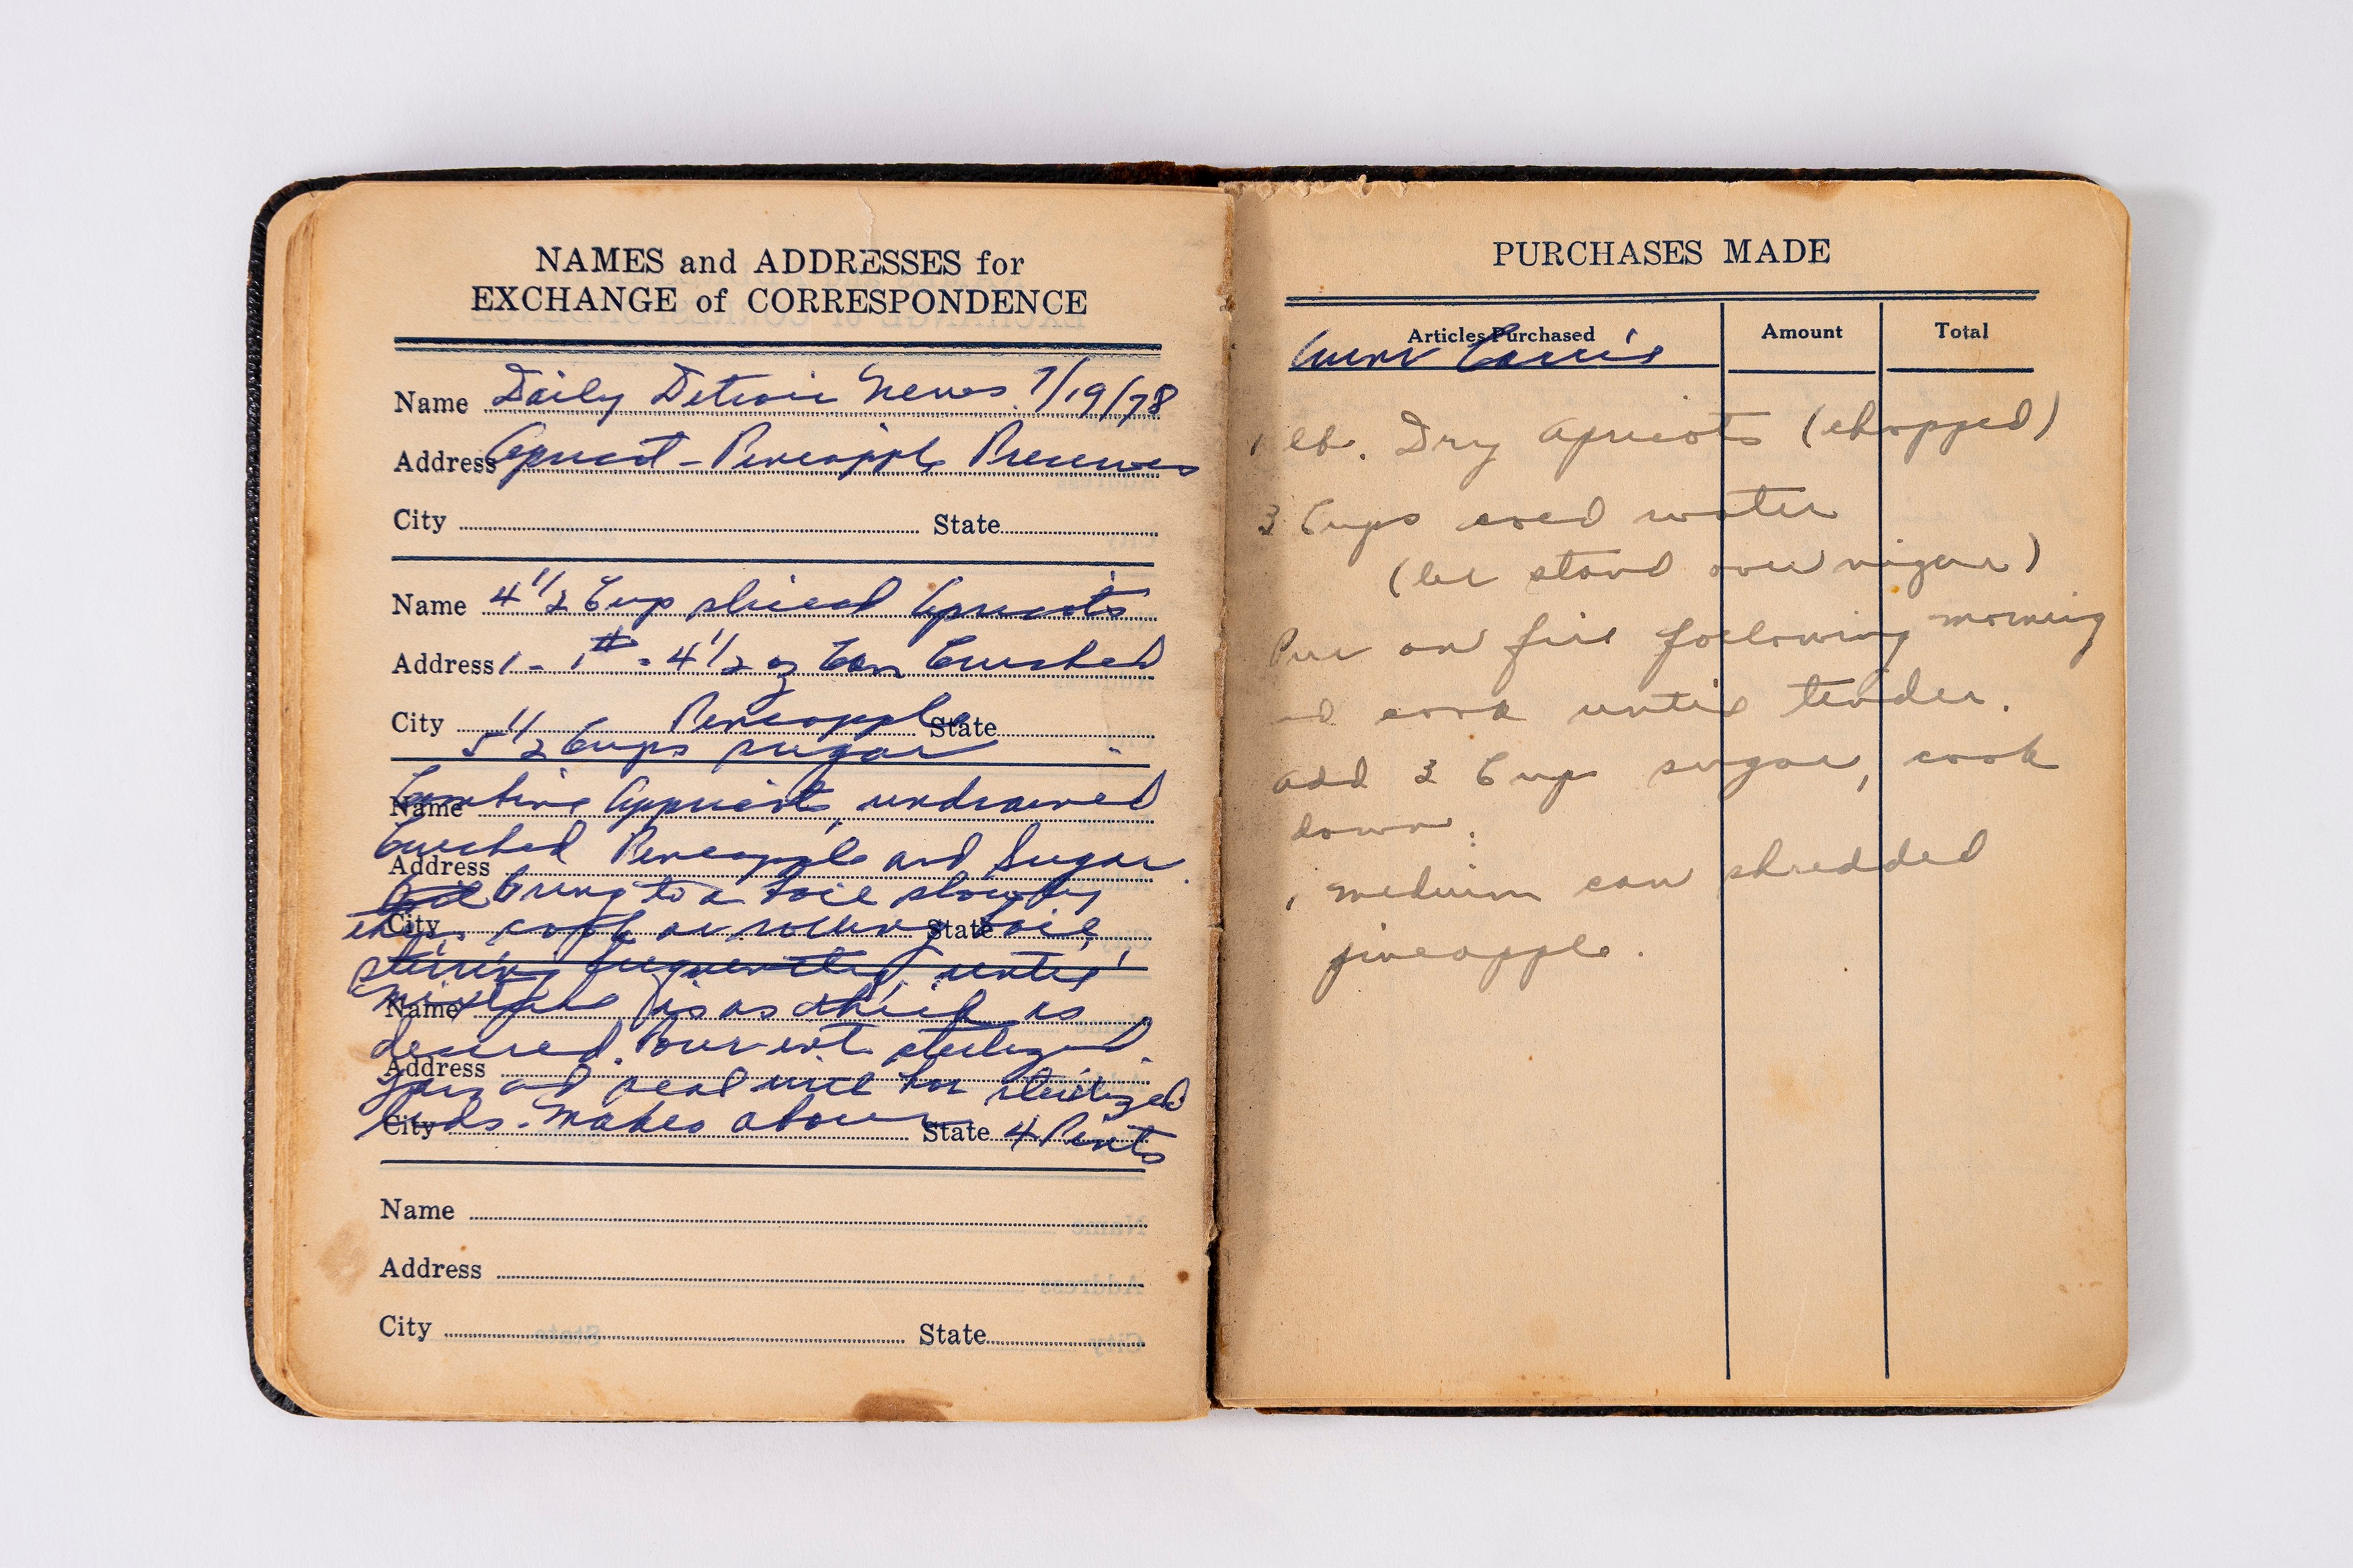 NAMES and ADDRESSES for
EXCHANGE of CORRESPONDENCE
Name Daily Detroit News 7/19/78
Address Apricot - Pineapple Preserves
City State
Name 4 1/2 Cup sliced Apricots
Address 1 - 1# - 4 1/2 oz Can Crushed
City Pineapple State
5 1/2 Cups sugar
Name Combine Appricots, undrained
Crushed Pineapple and Sugar.
Address
bring to a boil slowly
City then cook at rolling boil, State
stirring frequently, until
Name mixture is as thick as
desired. Pour into sterilized
Address
Jars and seal with hot sterilized
City lids. Makes about State 4 Pints
Name
Address
City State
PURCHASES MADE
Articles Purchased Amount Total
Aunt
1 lb. Dry Apricots (chopped)
3 Cups cold water
(let stand over night)
Put on fire following morning
and cook until tender.
add 3 Cups sugar, cook
down.
1 medium can shredded
pineapple.